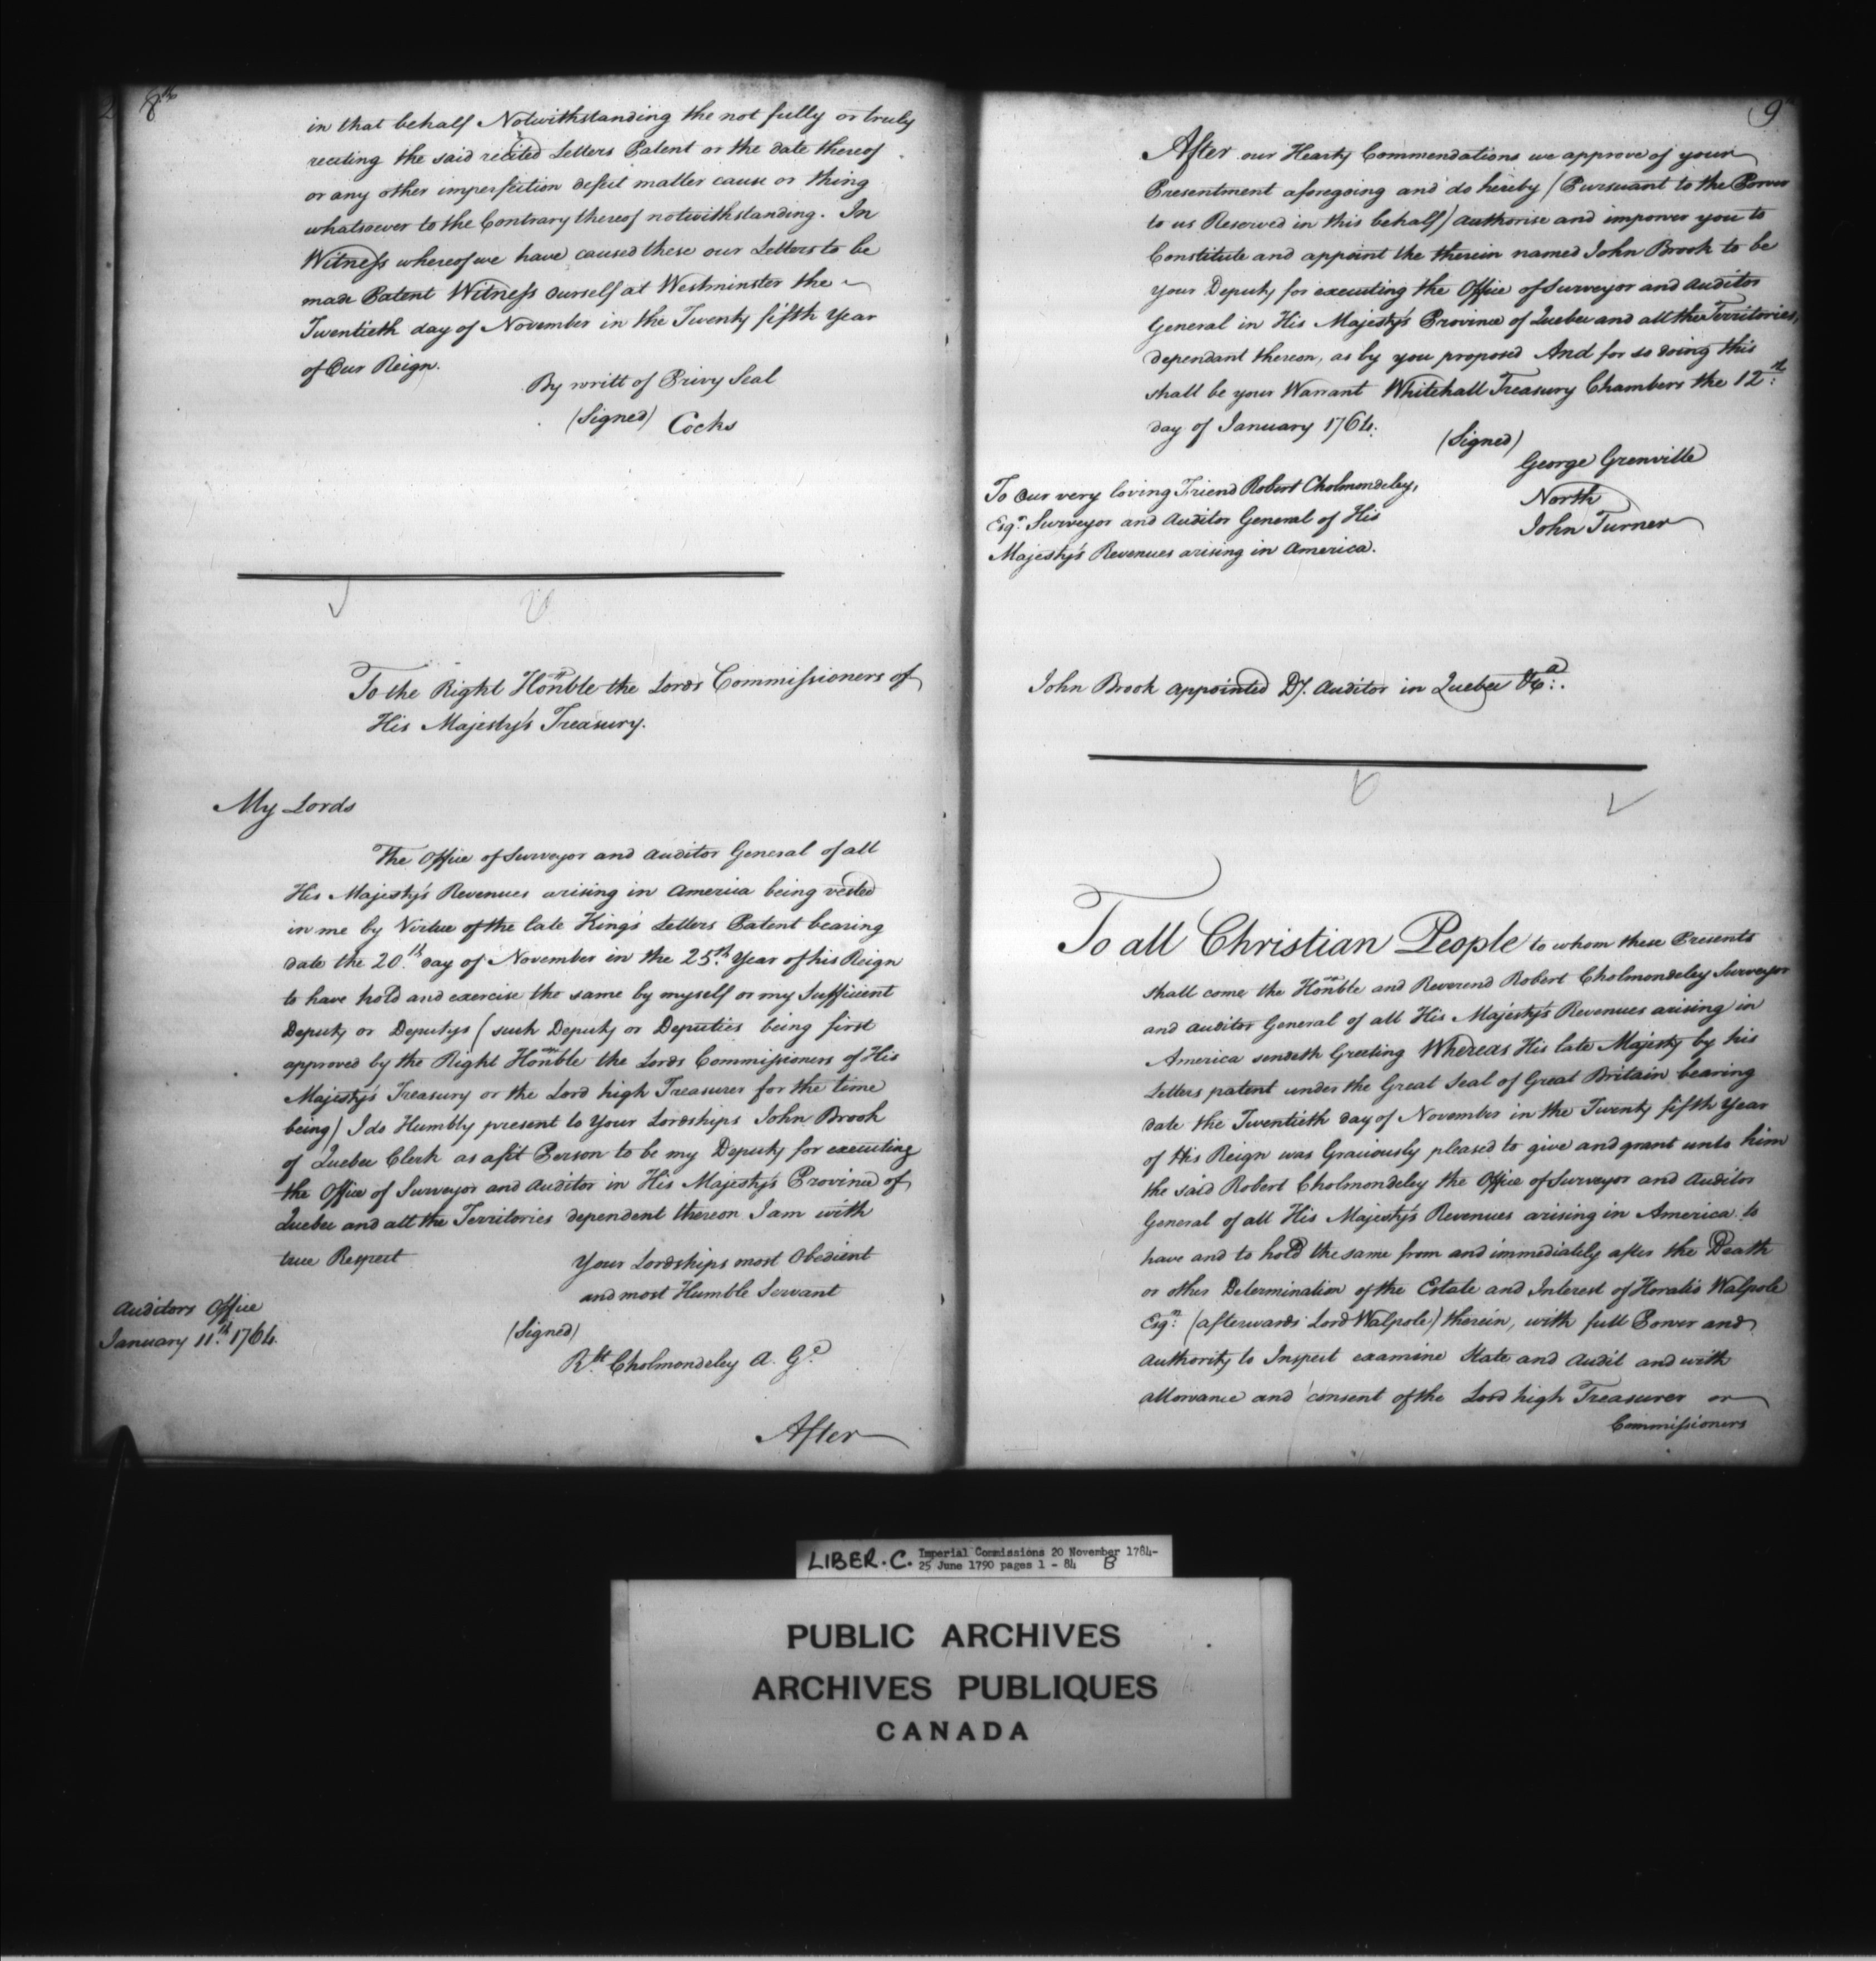 8th
in that behalf Notwithstanding the not fully or truly
reciting the said recited Letters Patent or the date thereof
or any other imperfection defect matter cause or thing
whatsoever to the Contrary thereof notwithstanding. In
Witness whereof we have caused these our Letters to be
made Patent Witness Ourself at Westminster the
Twentieth day of November in the Twenty fifth Year
of Our Reign.
By writt of Privy Seal
(Signed) Cocks
To the Right Honble the Lords Commissioners of
His Majesty's Treasury.
My Lords
The Office of Surveyor and Auditor General of all
His Majesty's Revenues arising in America being vested
in me by Virtue of the late King's Letters Patent bearing
date the 20th day of November in the 25th Year of his Reign
to have hold and exercise the same by myself or my Sufficient
Deputy or Deputys (such Deputy or Deputies being first
approved by the Right Honble the Lords Commissioners of His
Majesty's Treasury or the Lord high Treasurer for the time
being) I do Humbly present to Your Lordships John Brook
of Quebec Clerk as a fit Person to be my Deputy for executing
the Office of Surveyor and Auditor in His Majesty's Province of
Quebec and all the Territories dependent thereon I am with
true Respect
Your Lordships most Obedient
and most Humble Servant
Auditors Office
January 11th 1764.
(Signed)
Rbt Cholmondeley A. Gl
After
9
After our Hearty Commendations we approve of your
Presentment aforegoing and do hereby (Pursuant to the Power
to us Reserved in this behalf) authorise and impower you to
Constitute and appoint the therein named John Brook to be
your Deputy for executing the Office of Surveyor and Auditor
General in His Majesty's Province of Quebec and all the Territories,
dependant thereon, as by you proposed And for so doing this
shall be your Warrant Whitehall Treasury Chambers the 12th
day of January 1764.
(Signed)
George Grenville
North
John Turner
To Our very loving Friend Robert Cholmondeley,
Esqr. Surveyor and Auditor General of His
Majesty's Revenues arising in America.
John Brook appointed Dy. Auditor in Quebec &ca.
To all Christian People to whom these Presents
shall come the Honble and Reverend Robert Cholmondeley Surveyor
and Auditor General of all His Majesty's Revenues arising in
America sendeth Greeting Whereas His late Majesty by his
Letters patent under the Great Seal of Great Britain bearing
date the Twentieth day of November in the Twenty fifth Year
of His Reign was Graciously pleased to give and grant unto him
the said Robert Cholmondeley the Office of Surveyor and Auditor
General of all His Majesty's Revenues arising in America to
have and to hold the same from and immediately after the Death
or other Determination of the Estate and Interest of Horatio Walpole
Esqr. (afterwards Lord Walpole) therein, with full Power and
Authority to Inspect examine State and Audit and with
allowance and consent of the Lord high Treasurer or
Commissioners
LIBER. C. Imperial Commissions 20 November 1784-
25 June 1790 pages 1 - 84 B
PUBLIC ARCHIVES
ARCHIVES PUBLIQUES
CANADA